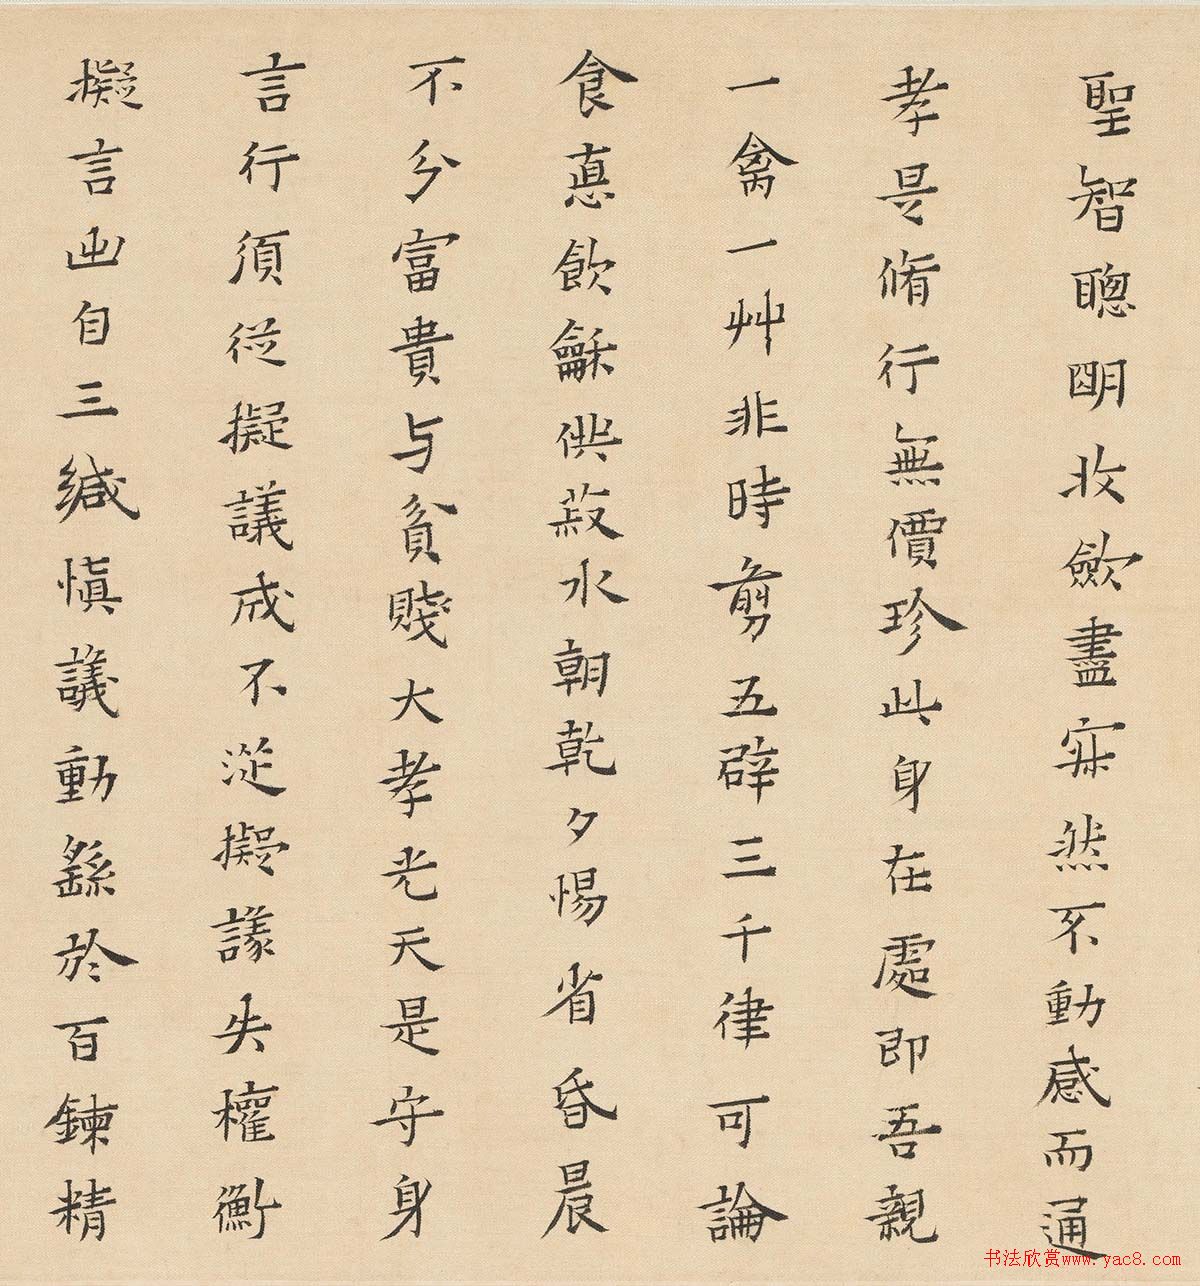 聖智聰明收斂盡寂然不動感而通
孝是脩行無價珍此身在處即吾親
一禽一艸非時剪五辟三千律可論
食惪飲龢供菽水朝乾夕惕省昏晨
不分富貴与貧賤大孝光天是守身
言行須從擬議成不從擬議失權衡
擬言出自三緘慎議動繇於百鍊精
书法欣赏www.yac8.com